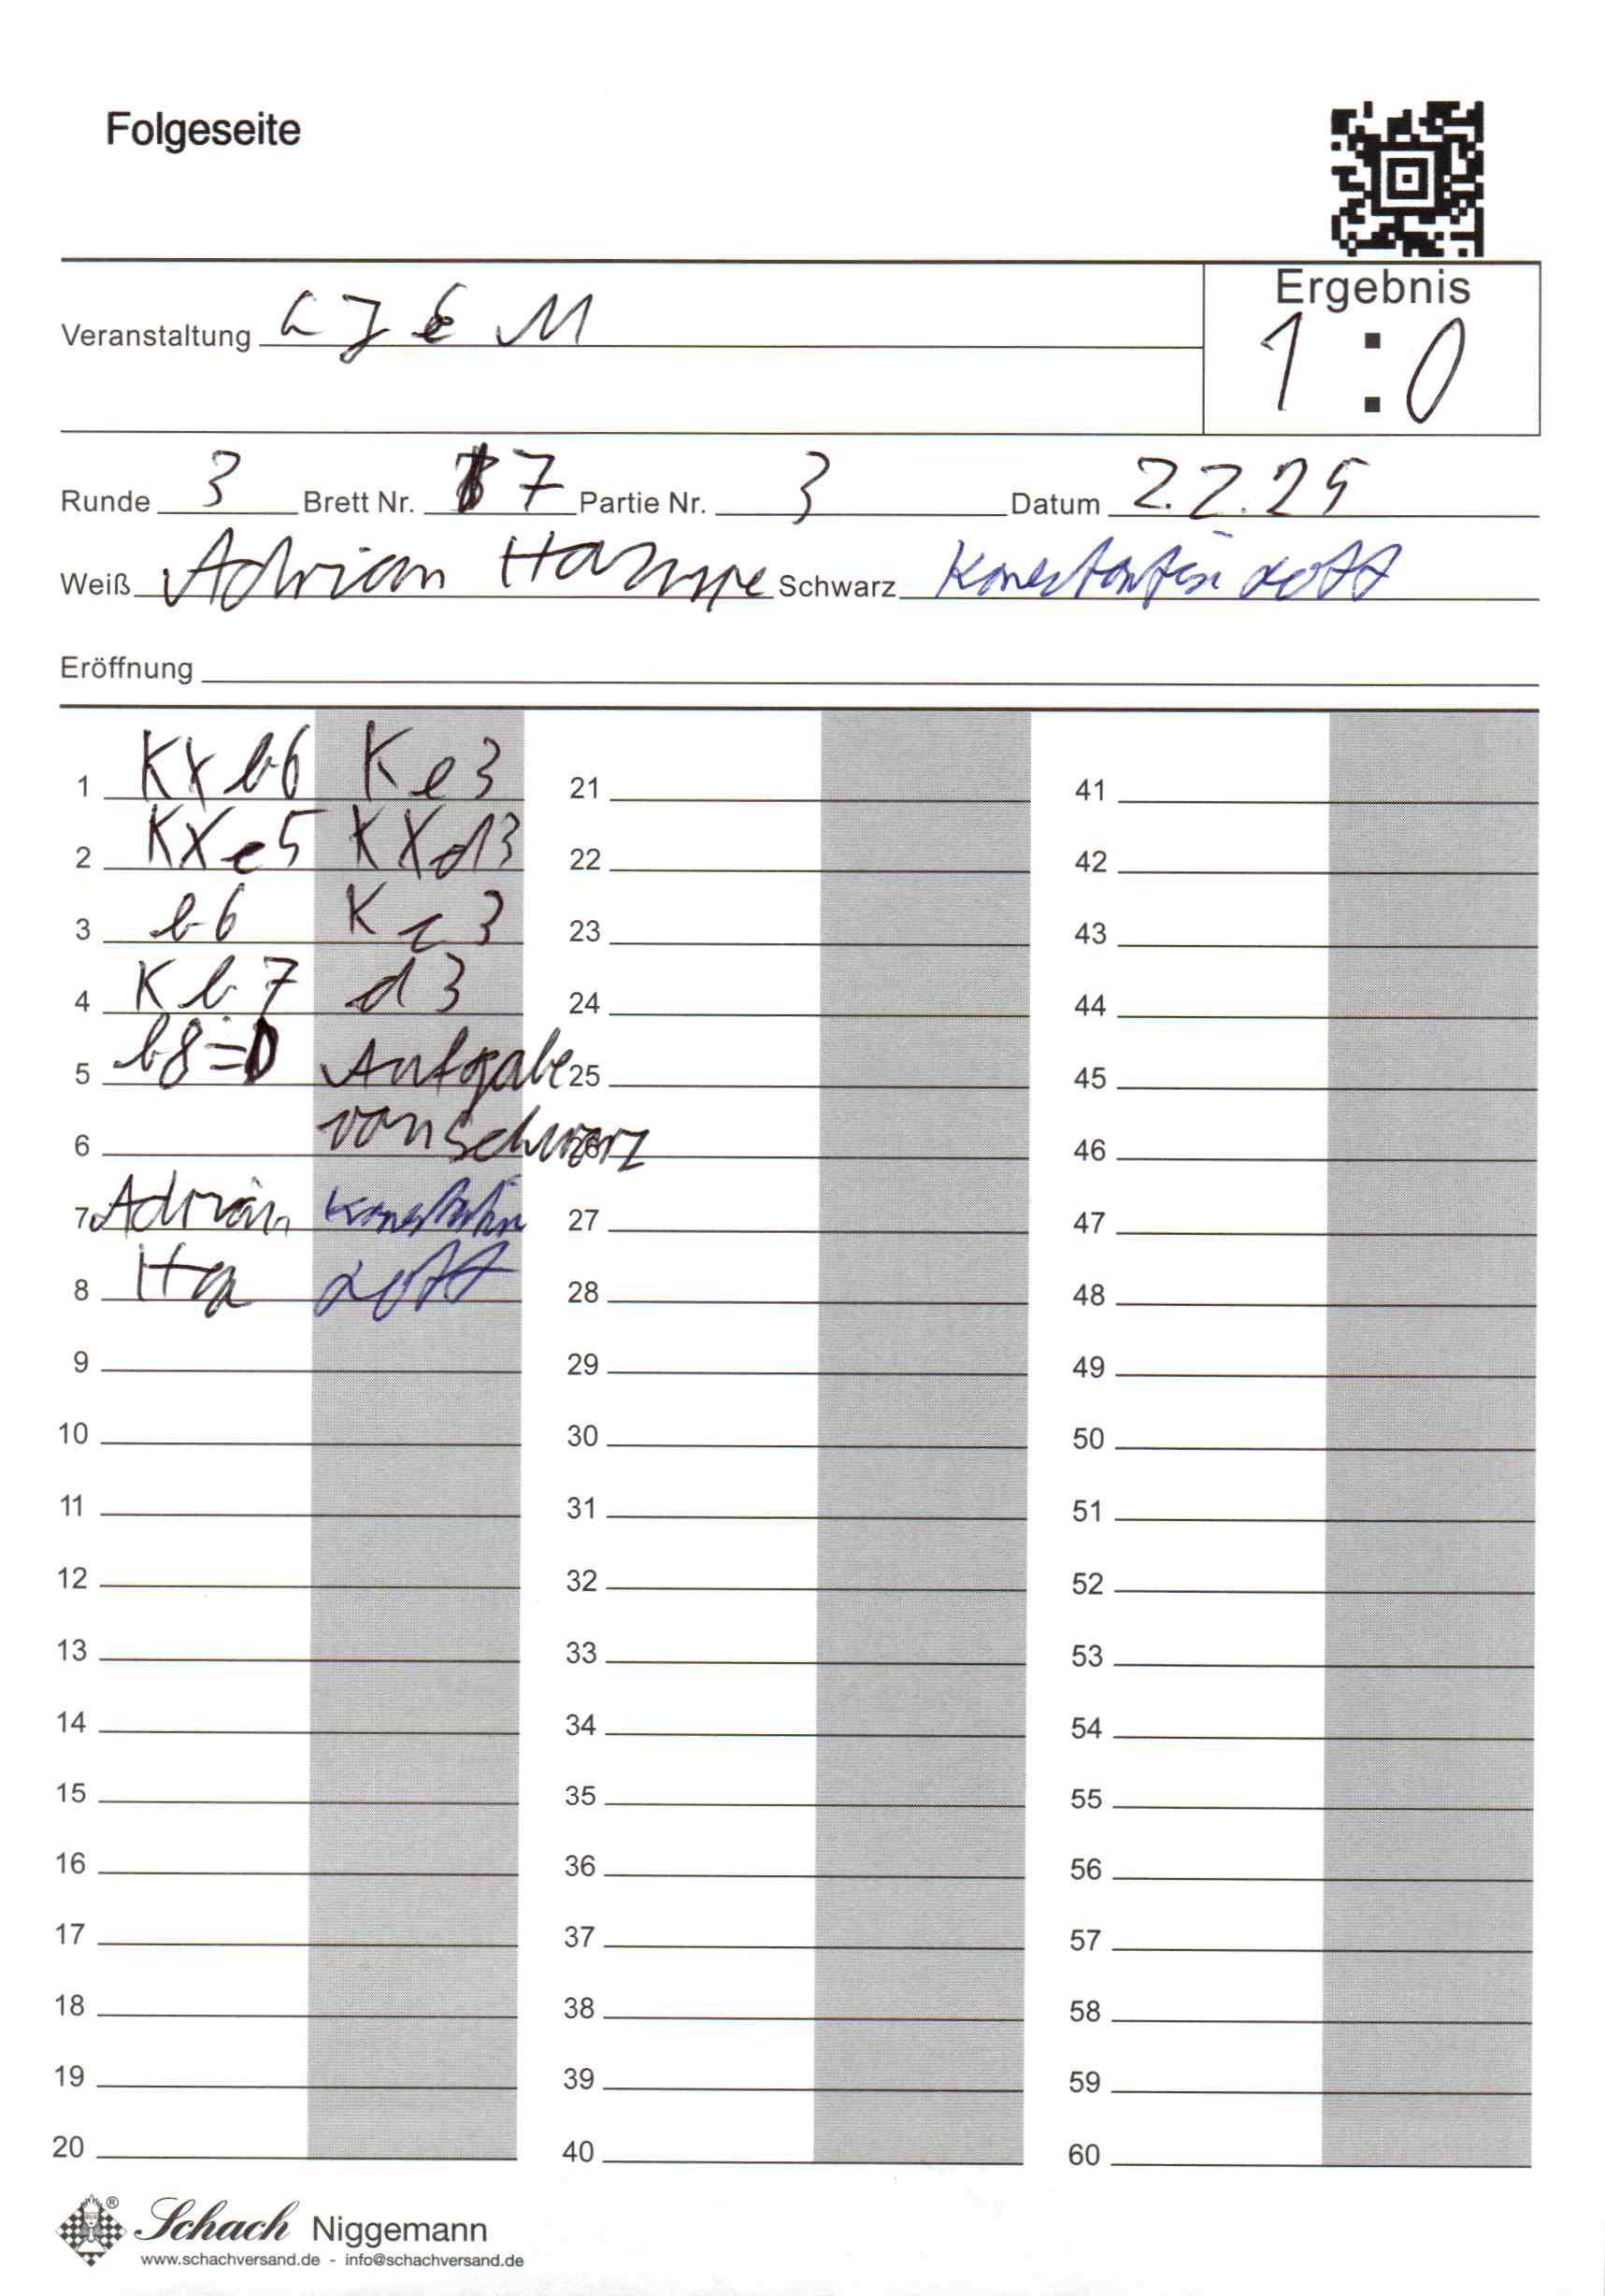 Folgeseite
Ergebnis
Veranstaltung LJEM
1 : 0
Runde 3 Brett Nr. 7 Partie Nr. 3 Datum 2.2.25
Weiß Adrian Hampe Schwarz Konstantin Lott
Eröffnung
1 Kxb6 Ke3 21 41
2 KXc5 KXd3 22 42
3 b6 Kc3 23 43
4 Kb7 d3 24 44
5 b8=D Aufgabe 25 45
6 von schwarz 26 46
7 Adrian Konstantin 27 47
8 Ha Lott 28 48
9 29 49
10 30 50
11 31 51
12 32 52
13 33 53
14 34 54
15 35 55
16 36 56
17 37 57
18 38 58
19 39 59
20 40 60
Schach Niggemann
www.schachversand.de - info@schachversand.de